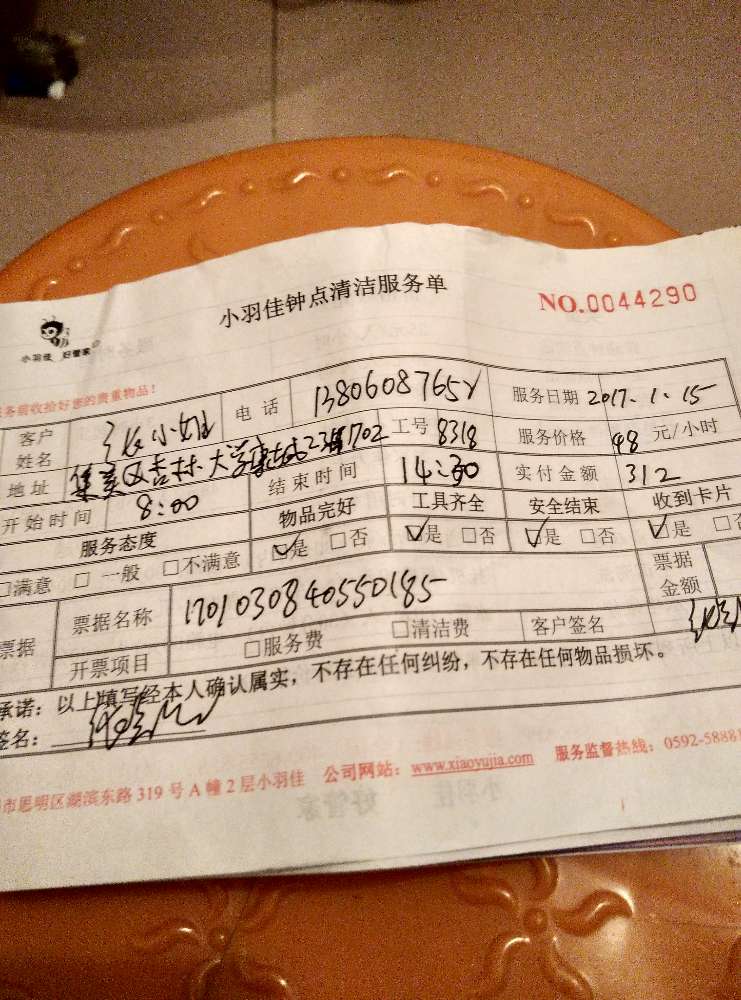 小羽佳钟点清洁服务单
NO.0044290
小羽佳 好管家
务前收拾好您的贵重物品!
客户姓名 张小姐 电话 13806087652 服务日期 2017.1.15
地址 集美区吉林大学 702 工号 8318 服务价格 48 元/小时
开始时间 8:00 结束时间 14:30 实付金额 312
服务态度 物品完好 工具齐全 安全结束 收到卡片
□满意 □一般 □不满意 ☑是 □否 ☑是 □否 ☑是 □否 ☑是
票据 票据名称 1701030840550185 票据金额
开票项目 □服务费 □清洁费 客户签名
承诺:以上填写经本人确认属实,不存在任何纠纷,不存在任何物品损坏。
签名:
市思明区湖滨东路319号A幢2层小羽佳 公司网站:www.xiaoyujia.com 服务监督热线:0592-58881